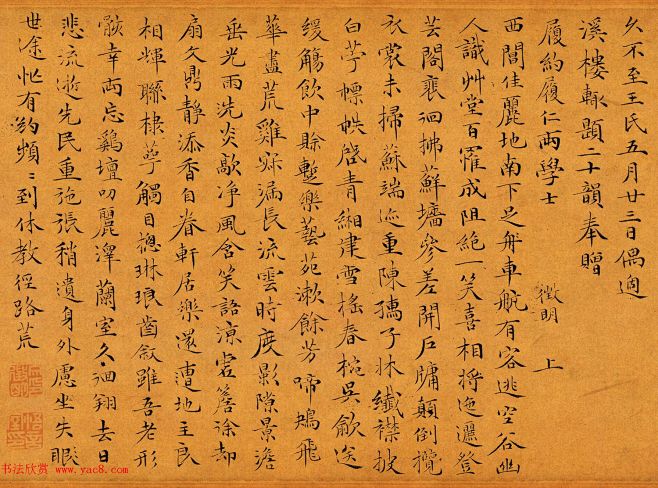 久不至王氏五月廿三日偶過
溪樓輒題二十韻奉贈
履約履仁兩學士 徵明 上
西閶佳麗地南下足舟車航有客逃空谷幽
人識艸堂百罹成阻絕一笑喜相將迤邐登
芸閣裵迴拂蘚墻參差開戶牖顛倒攬
衣裳未掃蘇端迹重陳孺子牀纖襟披
白苧幖帙啓青緗津雪搖春椀吳歈送
緩觴飲中賒蹔樂藝苑漱餘芳啼鴂飛
華盡荒雞寐漏長流雲時度影隙景澹
垂光雨洗炎歊淨風含笑語涼虛簷涂却
扇文鼎靜添香自眷軒居樂還遭地主良
相輝聯棣萼觸目總琳琅齒敘雖吾老形
骸幸兩忘雞壇叨麗澤蘭室久迴翔去日
悲流逝先民重施張稍遺身外慮坐失眼
世途忙有約頻〻到休教徑路荒
书法欣赏
www.yac8.com